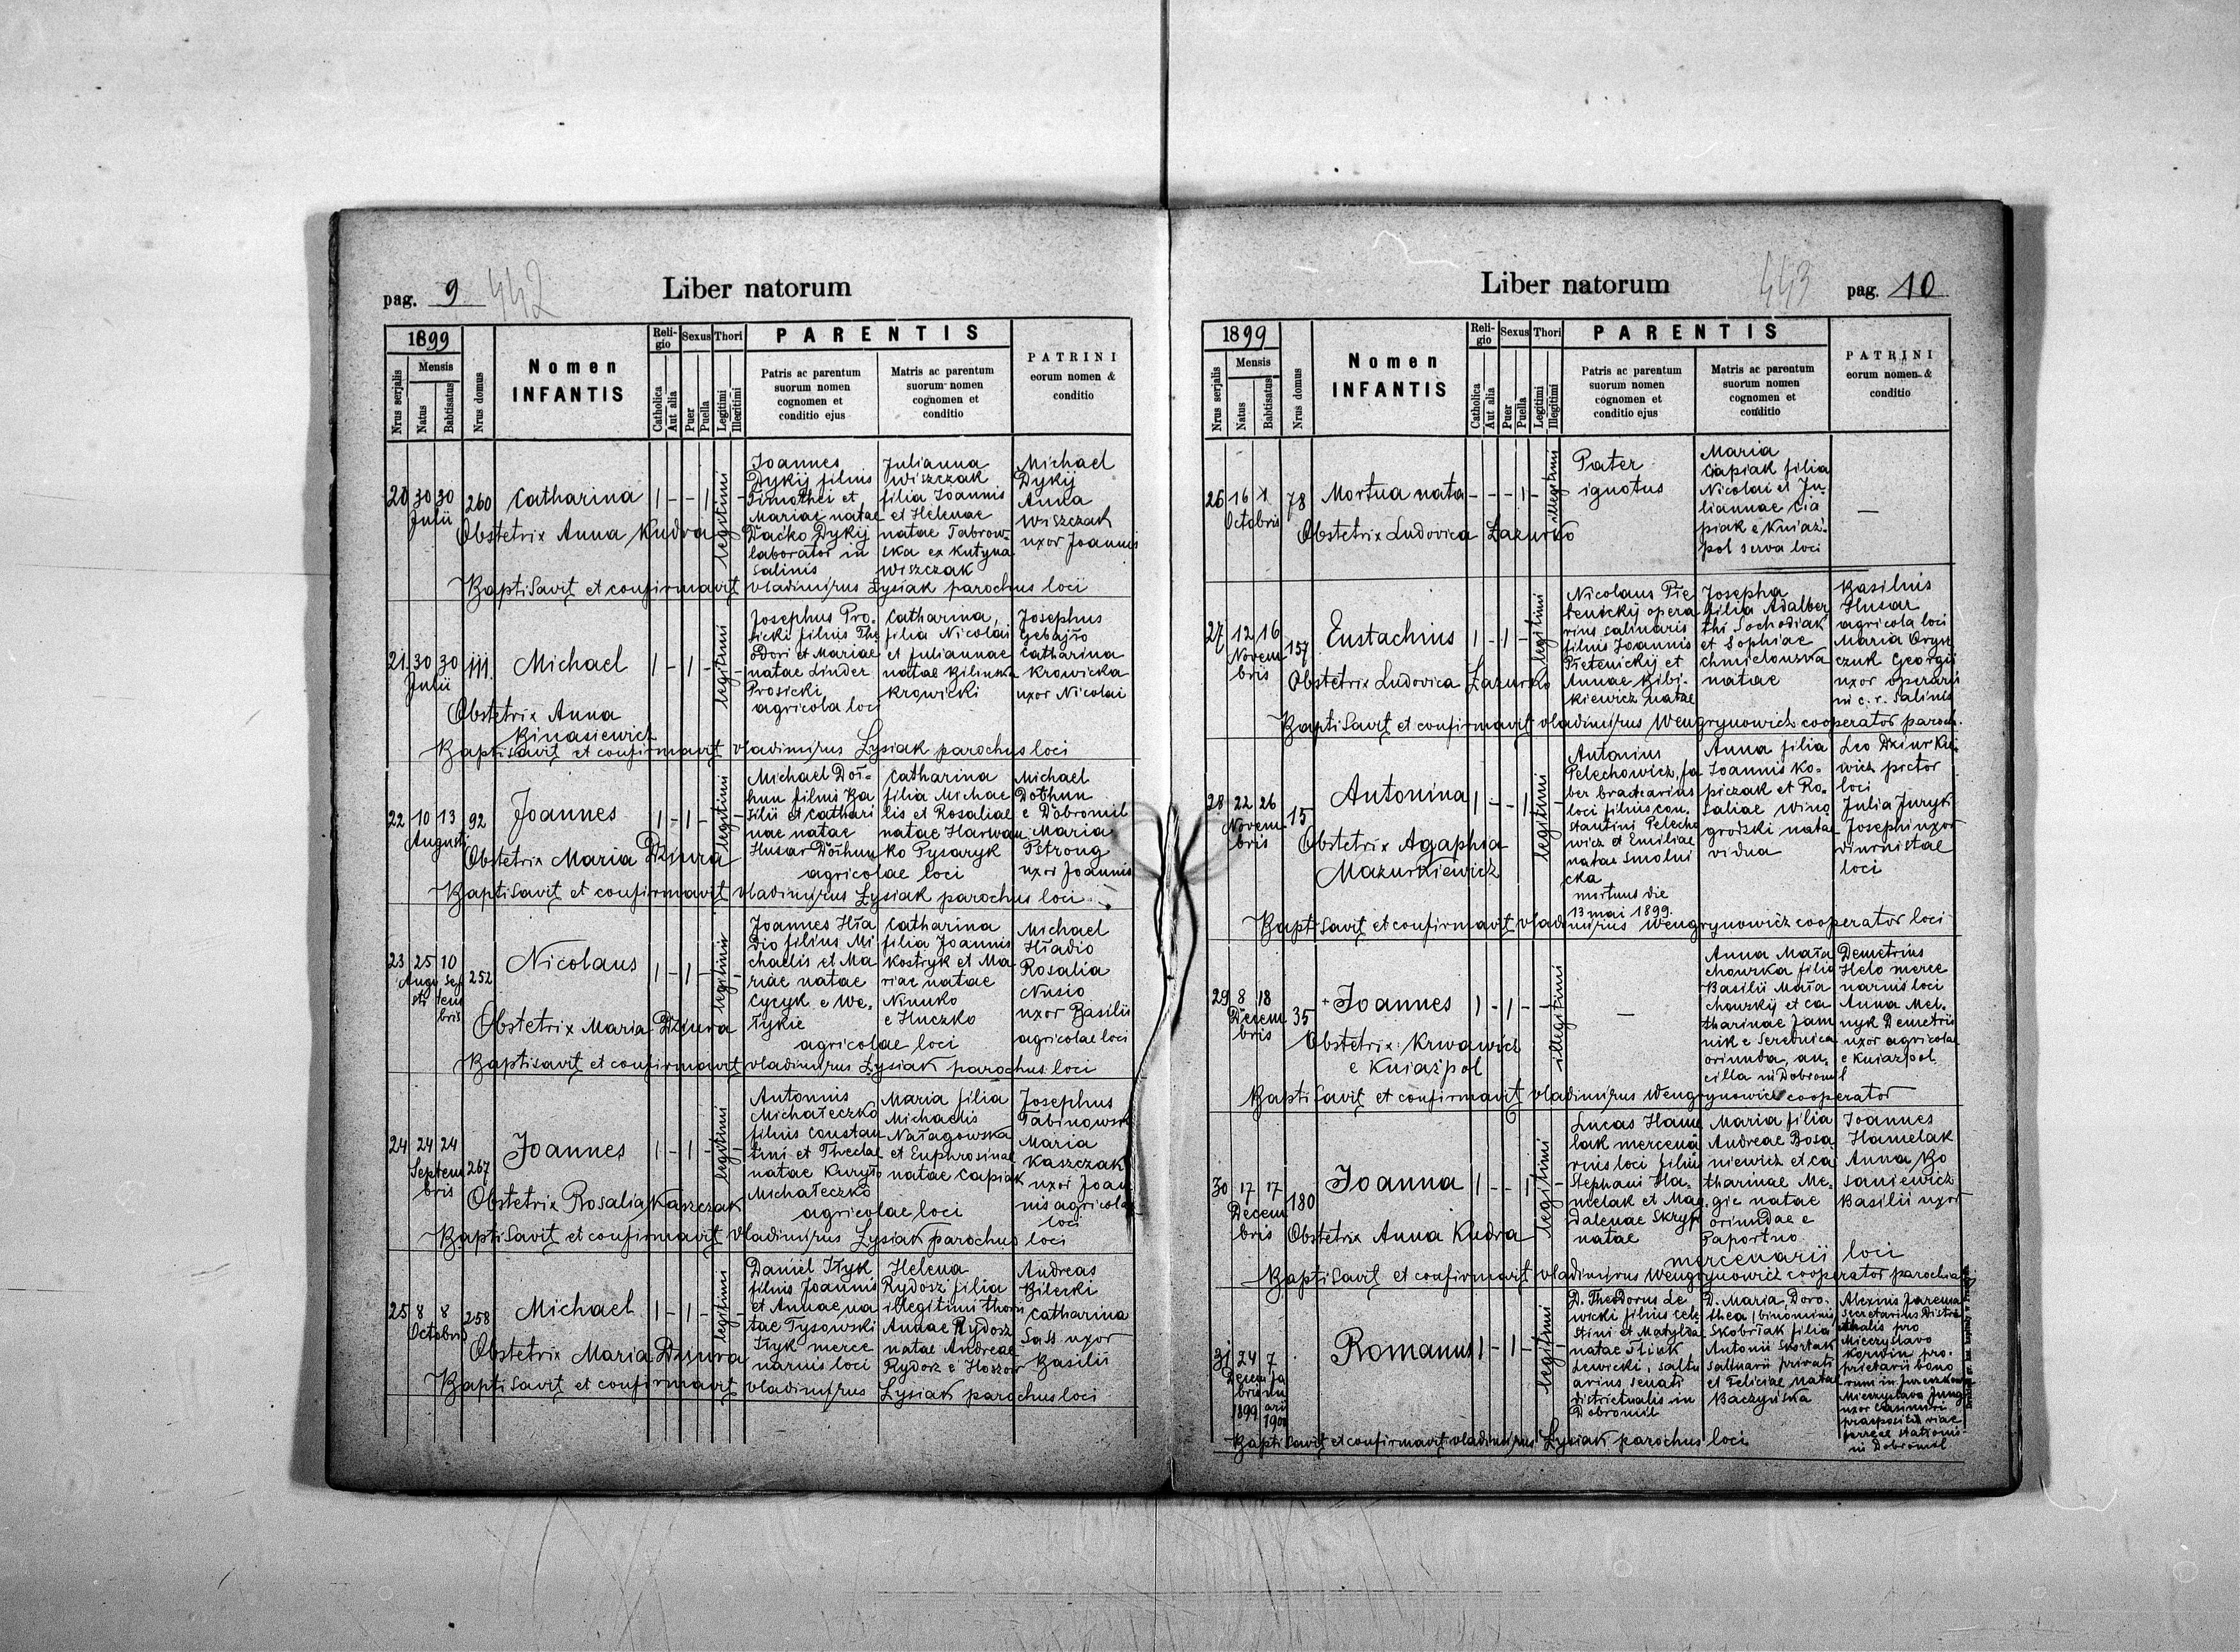 pag. 9 442
Liber natorum
1899
Mensis
Nrus serjalis
Natus
Babtisatus
Nrus domus
Nomen
INFANTIS
Reli-
gio
Catholica
Aut alia
Sexus
Puer
Puella
Thori
Legitimi
Illegitimi
PARENTIS
Patris ac parentum
suorum nomen
cognomen et
conditio ejus
Matris ac parentum
suorum nomen
cognomen et
conditio
PATRINI
eorum nomen &
conditio
20 30 30 260 Catharina 1 - - 1 legitimi -
Julii
Obstetrix Anna Kudra
Joannes
Dykij filius
Timothei et
Mariae natae
Daćko Dykij
laborator in
salinis
Julianna
Wiszczak
filia Joannis
et Helenae
natae Tabrow-
ska ex Kutyna
Wiszczak
Michael
Dykij
Anna
Wiszczak
uxor Joannis
Baptisavit et confirmavit Vladimirus Łysiak parochus loci
21 30 30 111 Michael 1 - 1 - legitimi -
Julii
Obstetrix Anna
Binasiewicz
Josephus Pro-
sicki filius The
odori et Mariae
natae Linder
Prosicki
agricola loci
Catharina,
filia Nicolai
et Juliannae
natae Bilinska
Krowicki
Josephus
Gebajło
Catharina
Krowicka
uxor Nicolai
Baptisavit et confirmavit Vladimirus Łysiak parochus loci
22 10 13 92 Joannes 1 - 1 - legitimi -
Augusti
Obstetrix Maria Dziura
Michael Doł-
hun filius Ba
silii et Cathari
nae natae
Husar Dołhun
Catharina
filia Michae
lis et Rosaliae
natae Harwan
ko Pysaryk
agricolae loci
Michael
Dołhun
e Dobromil
Maria
Petroug
uxor Joannis
Baptisavit et confirmavit Vladimirus Łysiak parochus loci
23 25 10 252 Nicolaus 1 - 1 - legitimi -
Augu Sep
sti tem
bris
Obstetrix Maria Dziura
Joannes Hła
dio filius Mi
chaelis et Ma
riae natae
Cycyk e We-
łykie
Catharina
filia Joannis
Kostryk et Ma
riae natae
Ninuko
e Huczko
agricolae loci
Michael
Hładio
Rosalia
Nusio
uxor Basilii
agricolae loci
Baptisavit et confirmavit Vladimirus Łysiak parochus loci
24 24 24 267 Joannes 1 - 1 - legitimi -
Septem
bris
Obstetrix Rosalia Kaszczak
Antonius
Michałeczko
filius Constan
tini et Theclae
natae Kuryło
Michałeczko
Maria filia
Michaelis
Nałagowska
et Euphrosinae
natae Capiak
agricolae loci
Josephus
Tabinowski
Maria
Kaszczak
uxor Joan
nis agricolae
loci
Baptisavit et confirmavit Vladimirus Łysiak parochus loci
25 8 8 258 Michael 1 - 1 - legitimi -
Octobris
Obstetrix Maria Dziura
Daniel Iłyk
filius Joannis
et Annae na
tae Tysowski
Iłyk merce
narius loci
Helena
Rydosz filia
illegitimi thori
Annae Rydosz
natae Andreae
Rydosz e Hoszow
Andreas
Bilecki
Catharina
Sass uxor
Basilii
Baptisavit et confirmavit Vladimirus Łysiak parochus loci
Liber natorum
443 pag. 10
1899
Mensis
Nrus serjalis
Natus
Babtisatus
Nrus domus
Nomen
INFANTIS
Reli-
gio
Catholica
Aut alia
Sexus
Puer
Puella
Thori
Legitimi
Illegitimi
PARENTIS
Patris ac parentum
suorum nomen
cognomen et
conditio ejus
Matris ac parentum
suorum nomen
cognomen et
conditio
PATRINI
eorum nomen &
conditio
26 16 X 78 Mortua nata - - - 1 - illegitimi
Octobris
Obstetrix Ludovica Łazurko
Pater
ignotus
Maria
Capiak filia
Nicolai et Ju-
liannae Cia
piak e Kniaź-
pol serva loci
—
27 12 16 157 Eustachius 1 - 1 - legitimi
Novem
bris
Obstetrix Ludovica Łazurko
Nicolaus Pie
tenickij opera
rius salinaris
filius Joannis
Pietenickij et
Annae Bibi-
kiewicz natae
Josepha
filia Adalber
thi Sochodiak
et Sophiae
Chmielowska
natae
Basilius
Husar
agricola loci
Maria Oryn
czuk Georgii
uxor operarii
in c. r. Salinis
Baptisavit et confirmavit Vladimirus Wengrynowicz cooperator paroch.
28 22 26 15 Antonina 1 - - 1 legitimi
Novem
bris
Obstetrix Agaphia
Mazurkiewicz
Antonius
Pelechowicz, fa
ber bractearius
loci filius Con-
stantini Pelecho
wicz et Emiliae
natae Smolni
cka
mortuus die
13 mai 1899.
Anna filia
Joannis Ko-
piczak et Ro-
saliae Wino
grodzki natae
vidua
Leo Dziurkie-
wicz pictor
loci
Julia Juryk
Josephi uxor
diurnistae
loci
Baptisavit et confirmavit Vladimirus Wengrynowicz cooperator loci
29 8 18 35 + Joannes 1 - 1 - illegitimi
Decem
bris
Obstetrix Krwawicz
e Kniaźpol
—
Anna Mała
chowska filia
Basilii Mała
chowskij et Ca
tharinae Jam
nik e Serednica
oriunda, an-
cilla in Dobromil
Demetrius
Helo merce
narius loci
Anna Mel-
nyk Demetrii
uxor agricolae
e Kniazpol
Baptisavit et confirmavit Vladimirus Wengrynowicz cooperator
30 17 17 180 Joanna 1 - - 1 legitimi -
Decem
bris
Obstetrix Anna Kudra
Lucas Hame
lak mercena
rius loci filius
Stephani Ha-
melak et Mag
dalenae Skryp
natae
Maria filia
Andreae Bosa
niewicz et Ca
tharinae Me-
gie natae
oriundae e
Paportno
mercenarii loci
Joannes
Hamelak
Anna Bo
saniewicz
Basilii uxor
Baptisavit et confirmavit Vladimirus Wengrynowicz cooperator parochiae
31 24 7 Romanus 1 - 1 - legitimi
Decem Ja
bris nu
1899 arii
1900
D. Theodorus Le
wicki filius Cele
stini et Matyldae
natae Flink
Lewicki, saltu
arius senati
districtualis in
Dobromil
D. Maria, Doro-
thea, binominis
Skobrłak filia
Antonii Skortak
saltuarii privati
et Feliciae natae
Baczyńska
Alexius Jarema
secretarius Distric
thalis pro
Mieczyslavo
Korwin pro-
prietarii bono
rum in
Mieczyslava Jung
uxor Casimiri
praepositi viae
ferreae stationis
in Dobromil
Baptisavit et confirmavit Vladimirus Łysiak parochus loci